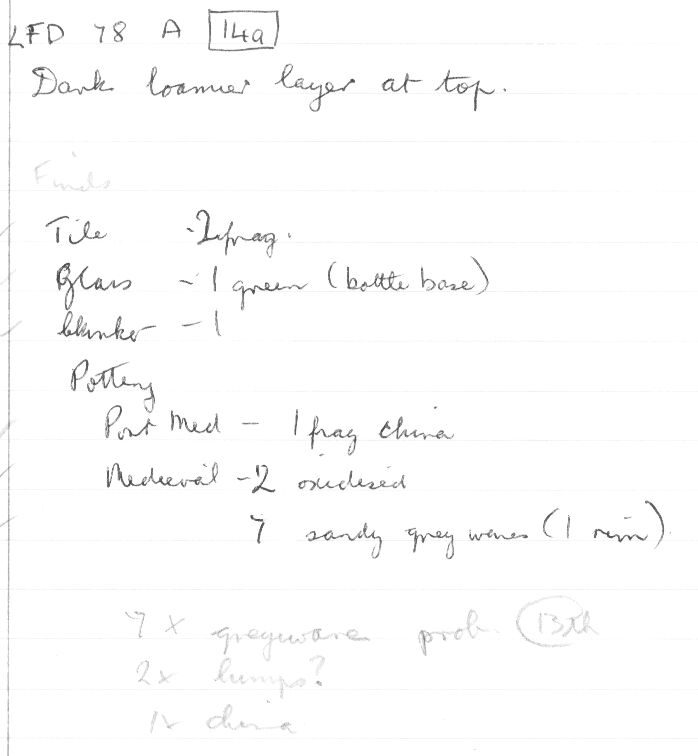 LFD 78 A 14a
Dark loamier layer at top.
Finds
Tile - 2 frag.
Glass - 1 green (bottle base)
Clinker - 1
Pottery
Post Med - 1 frag china
Medieval - 2 oxidised
7 sandy grey wares (1 rim)
7 x greyware prob. 13th
2x lumps?
1x china